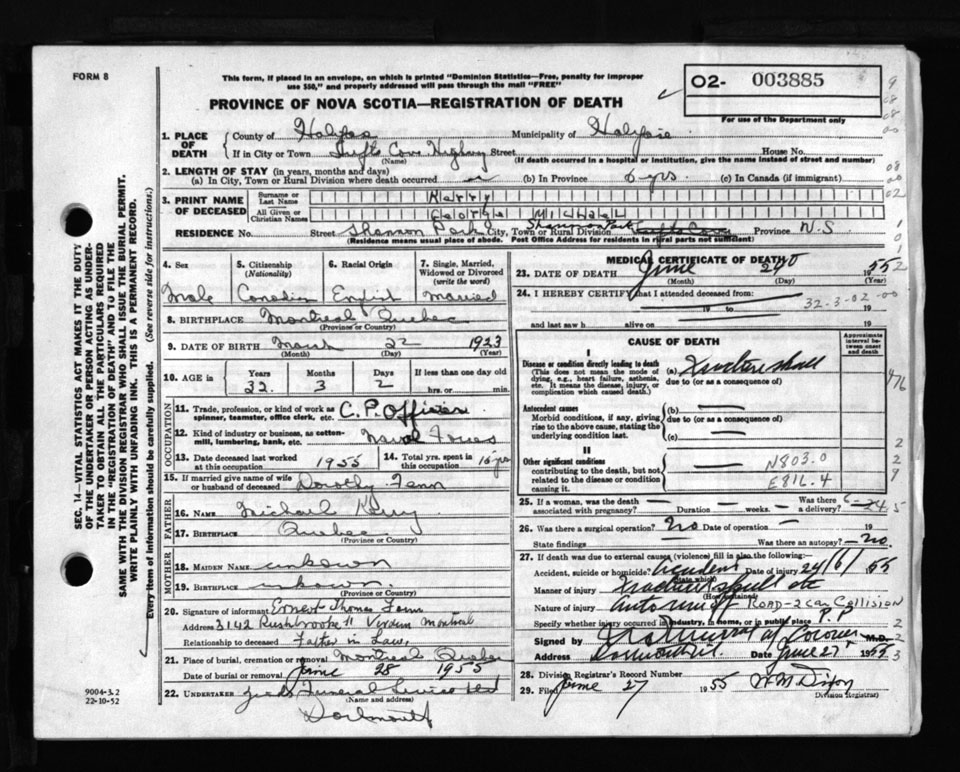 FORM 8
This form, if placed in an envelope, on which is printed "Dominion Statistics—Free, penalty for improper use $50," and properly addressed will pass through the mail "FREE"
O2- 003885
For use of the Department only
PROVINCE OF NOVA SCOTIA—REGISTRATION OF DEATH
1. PLACE OF DEATH County of Halifax Municipality of Halifax
If in City or Town Tufts Cove Highway Street House No.
(Name) (If death occurred in a hospital or institution, give the name instead of street and number)
2. LENGTH OF STAY (in years, months and days)
(a) In City, Town or Rural Division where death occurred (b) In Province 6 yrs (c) In Canada (if immigrant)
3. PRINT NAME OF DECEASED Surname or Last Name Kerry
All Given or Christian Names George Michael
RESIDENCE No. Street Shannon Park City, Town or Rural Division Shannon Park Tufts Cove Province N.S
(Residence means usual place of abode. Post Office Address for residents in rural parts not sufficient)
4. Sex Male
5. Citizenship (Nationality) Canadian
6. Racial Origin English
7. Single, Married, Widowed or Divorced (write the word) Married
8. BIRTHPLACE Montreal Quebec
(Province or Country)
9. DATE OF BIRTH March 22 1923
(Month) (Day) (Year)
10. AGE in Years 32 Months 3 Days 2 If less than one day old hrs. or min.
OCCUPATION
11. Trade, profession, or kind of work as spinner, teamster, office clerk, etc. C.P.Officer
12. Kind of industry or business, as cotton-mill, lumbering, bank, etc. Naval Forces
13. Date deceased last worked at this occupation 1955
14. Total yrs. spent in this occupation 15 yrs
15. If married give name of wife or husband of deceased Dorothy Fenn
FATHER
16. NAME Michael Kerry
17. BIRTHPLACE Quebec
(Province or Country)
MOTHER
18. MAIDEN NAME unknown
19. BIRTHPLACE unknown
(Province or Country)
20. Signature of informant Ernest Thomas Fenn
Address 3142 Rushbrooke St Verdun Montreal
Relationship to deceased Father in Law
21. Place of burial, cremation or removal Montreal Quebec
Date of burial or removal June 28 1955
22. UNDERTAKER Funeral Service Ltd
(Name and address)
Dartmouth
9004-3.2
22-10-52
SEC. 14—VITAL STATISTICS ACT MAKES IT THE DUTY OF THE UNDERTAKER OR PERSON ACTING AS UNDERTAKER TO OBTAIN ALL THE PARTICULARS REQUIRED IN THE "REGISTRATION OF DEATH" AND TO FILE THE SAME WITH THE DIVISION REGISTRAR WHO SHALL ISSUE THE BURIAL PERMIT.
WRITE PLAINLY WITH UNFADING INK. THIS IS A PERMANENT RECORD.
Every item of information should be carefully supplied. (See reverse side for instructions.)
MEDICAL CERTIFICATE OF DEATH
23. DATE OF DEATH June 24 1955
(Month) (Day) (Year)
24. I HEREBY CERTIFY that I attended deceased from:
32-3-02-00
19 to 19
and last saw h alive on 19
CAUSE OF DEATH
Approximate interval between onset and death
I
Disease or condition directly leading to death (This does not mean the mode of dying, e.g., heart failure, asthenia, etc. It means the disease, injury, or complication which caused death.)
(a) Fracture skull
due to (or as a consequence of)
Antecedent causes
Morbid conditions, if any, giving rise to the above cause, stating the underlying condition last.
(b)
due to (or as a consequence of)
(c)
II
Other significant conditions contributing to the death, but not related to the disease or condition causing it.
N803.0
E816.4
25. If a woman, was the death associated with pregnancy? Duration weeks. Was there a delivery?
26. Was there a surgical operation? No Date of operation 19
State findings Was there an autopsy? no.
27. If death was due to external causes (violence) fill in also the following:
Accident, suicide or homicide? Accident Date of injury 24/6/ 1955
(State which)
Manner of injury Fracture skull etc
(How sustained)
Nature of injury auto ROAD-2 Car Collision
Specify whether injury occurred in industry, in home, or in public place P.P
Signed by Coroner M.D.
Address Dartmouth Date June 27 1955
28. Division Registrar's Record Number
29. Filed June 27 1955 W M Dixon
Division Registrar